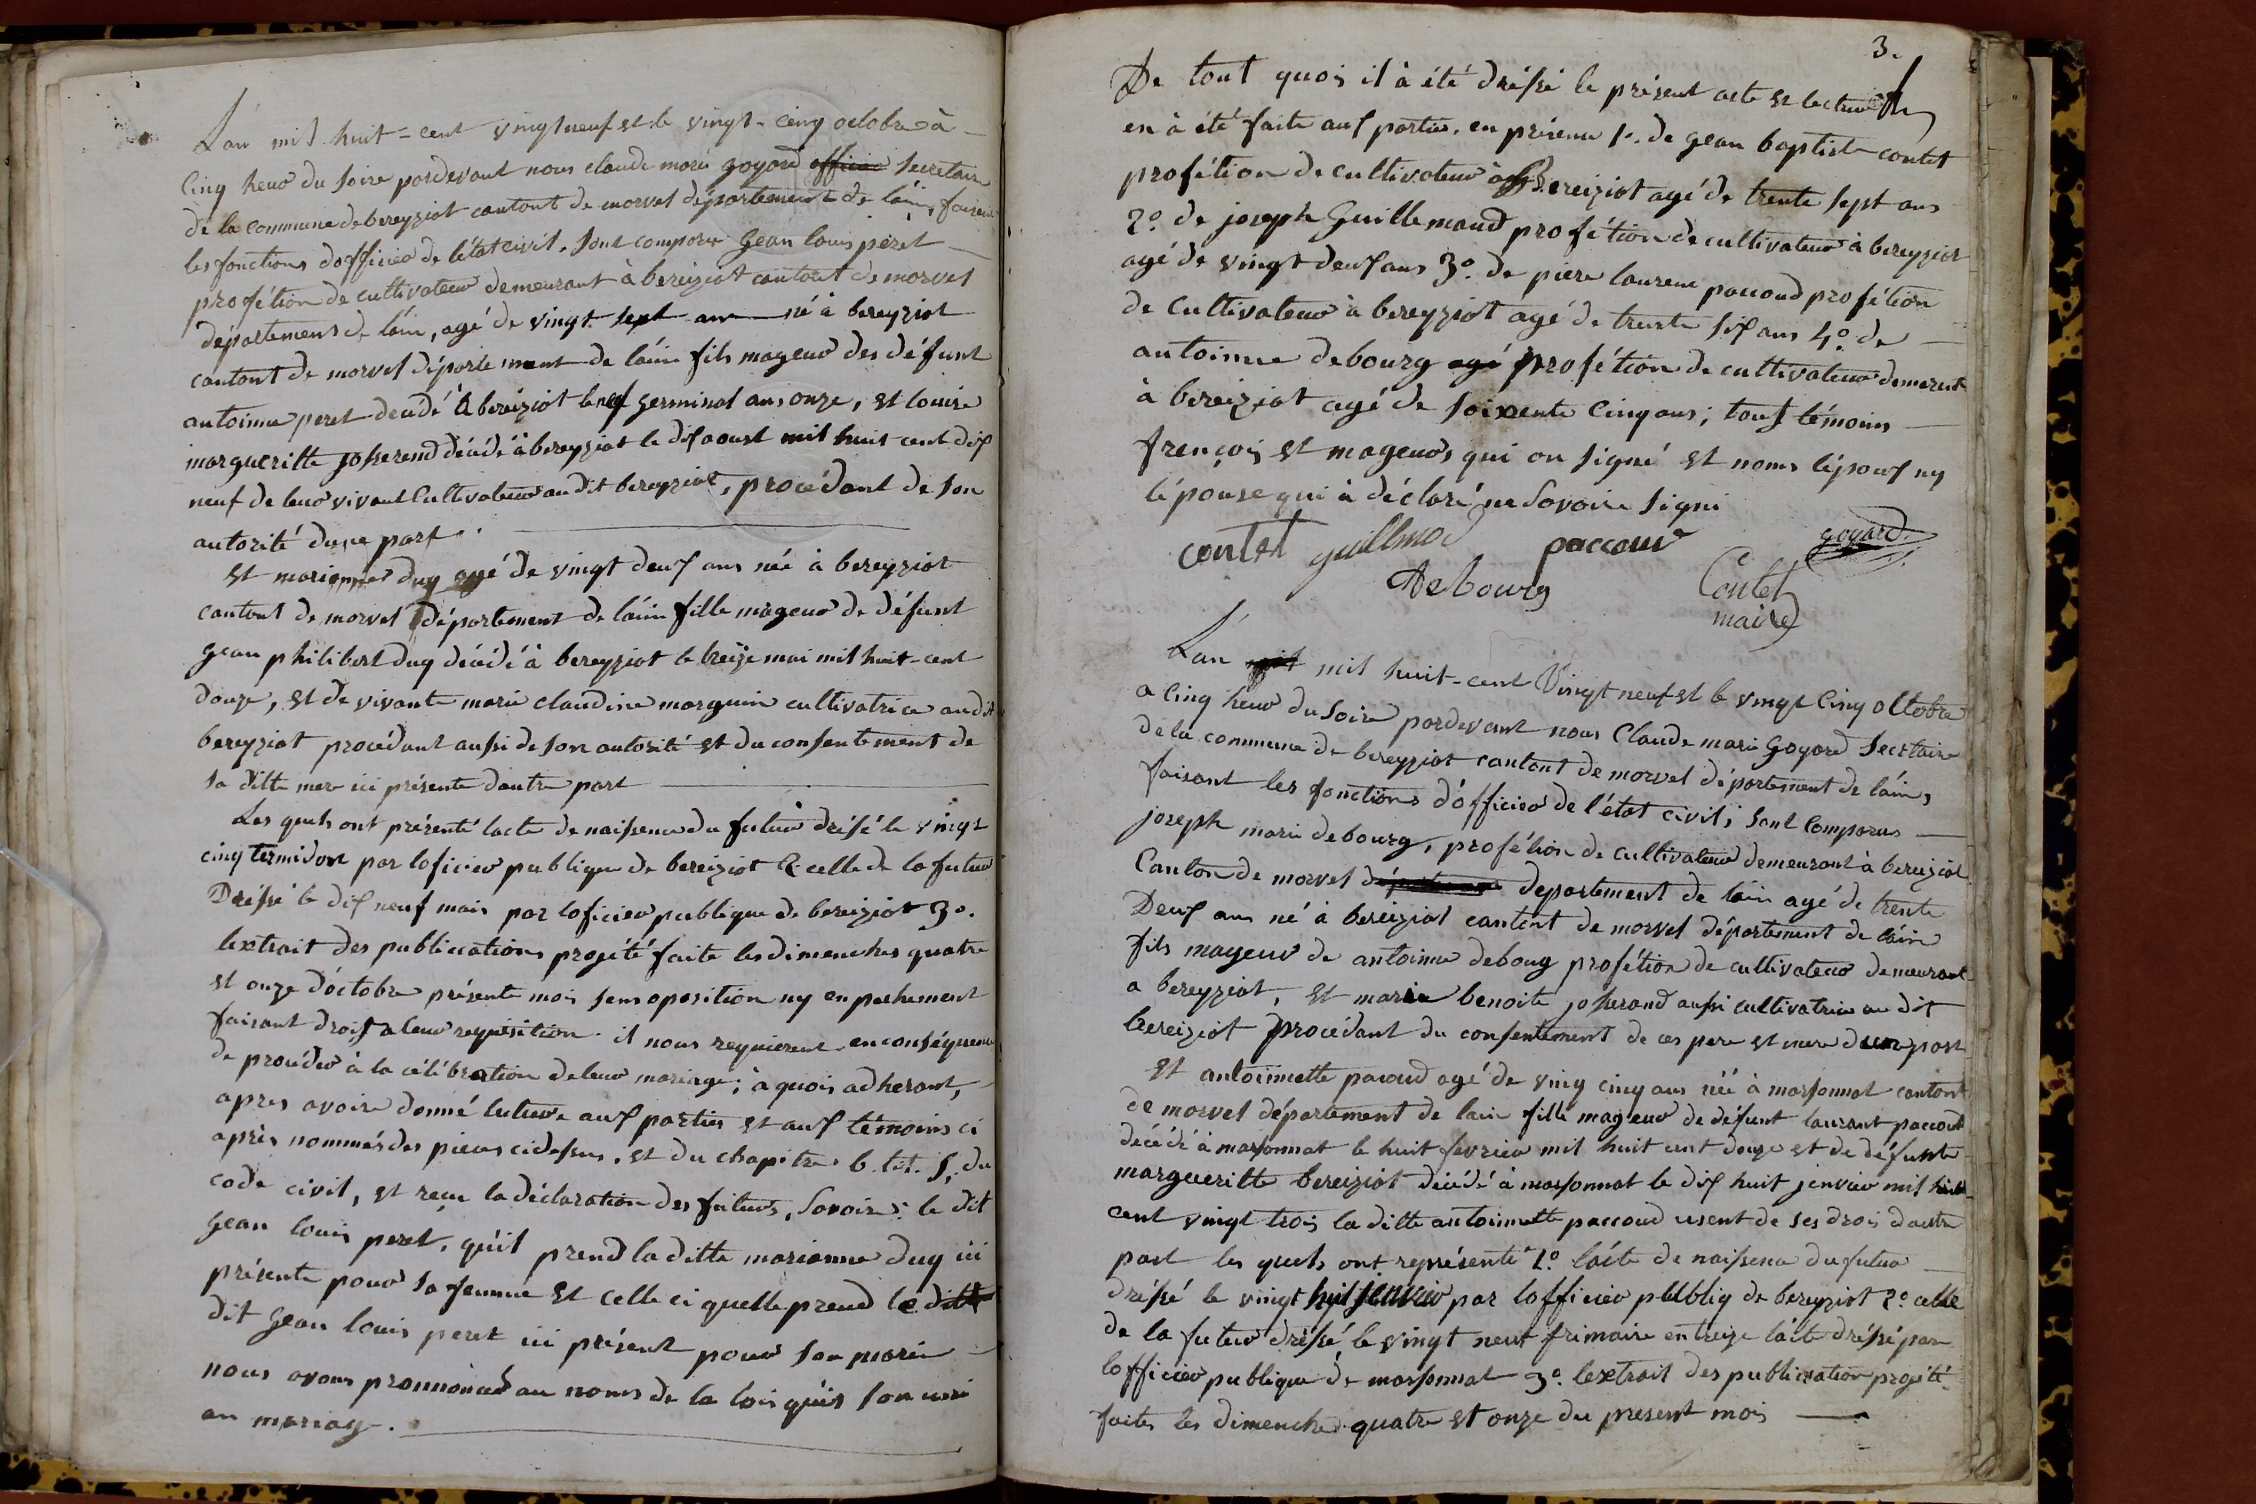 L'an mil huit-cent vingt neuf et le vingt-cinq octobre à
Cinq heur du soire pardevant nous claude marie goyard officier secretaire
de la commune de bereyziat cantont de marvel département de l'ain, faisant
les fonctions d'officier de l'état civil, sont comparu Gean louis peret
profétion de cultivateur demeurant à bereiziat cantont de marvel
département de l'ain, agé de vingt sept ans né à bereyziat
cantont de marvel département de l'ain fils mageur des défunt
antoinne peret décédé à bereiziat le germinal ans onze, et louise
margueritte josserend décédé à bereyziat le dix aoust mil huit cent dix
neuf de leur vivant Cultivateur au dit bereyziat, procédant de son
autorité d'une part
et marianne duy agé de vingt deux ans née à bereyziat
cantont de marvel département de l'ain fille mageur de défunt
gean philibert duy décédé à bereyziat le treize mai mil huit-cent
douze, et de vivante marie claudine marguin cultivatrice au dit
bereyziat procédant aussi de son autorité et du consentement de
sa ditte mere ici présente d'autre part
Les quels ont présenté l'acte de naissence du futur dréssé le vingt
cinq termidore par loficier publique de bereiziat & celle de la futur
Dréssé le dix neuf mais par loficier publique de bereiziat 3o.
lextrait des publications projété faite les dimenches quatre
et onze d'octobre présente mois sens oposition ny enpechement
faisant droit a leur requisition. il nous requierent en conséquence
de procéder à la célébration de leur mariage; à quois adherant,
apres avoire donné lecture aux parties et aux témoins ci
après nommés des pieces cidessus, et du chapitre 6. tit. 5, du
code civil, et reçue la déclaration des futurs, savoire: le dit
Gean louis peret, quil prend la ditte marianne duy ici
présente pour sa femme et celle ci quelle prend le ditte
dit Gean louis peret ici présent pour son marie
nous avons pronnoncé au noms de la lois quis son uni
an mariage.
3.
De tout quois il à été dréssé le présent acte et lecture
en à été faite aux parties, en présence 1o. de Gean baptiste contet
profétion de cultivateur à Bereiziat agé de trente sept ans
2o. de joseph Guillemaud profétion de cultivateur à bereyziat
agé de vingt deux ans 3o. de piere laurent paccoud profétion
de Cultivateur à bereyziat agé de trente six ans 4o. de
antoinne debourg agé profétion de cultivateur demerent
à bereiziat agé de soixente cinq ans; tous témoins
françois et mageurs qui on signé et noms l'épous ny
l'épouse qui à déclaré ne savoire signi
contet guillmod paccour goyard
debourg Contet
maire
L'an mil mil huit-cent vingt neuf et le vingt Cinq octobre
a Cinq heur du soire pardevant nous Claude marie Goyard Secrtaire
de la commune de bereyziat cantont de marvel département de l'ain,
faisant les fonctions d'officier de l'état civil; sont Comparus
joseph marie debourg, profétion de cultivateur demeurant à bereiziat
Canton de marvel département departement de l'ain agé de trente
Deux ans né à bereiziat cantont de marvel département de l'ain
fils mageur de antoinne deboug profétion de cultivateur demeurant
a bereyziat, et marie benoite josserand aussi cultivatrice au dit
bereiziat procédant du consentement de ces pere et mere d'une part
et antoinnette pacoud agé de ving cinq ans née à marsonnat cantont
de marvel département de l'ain fille mageur de défunt laurant paccout
décédé à marsonnat le huit fevrier mil huit cent douze et de défunte
margueritte bereiziat décédé à marsonnat le dix huit jenvier mil huit
cent vingt trois la ditte antoinnette paccoud usent de ses drois d'autre
part les quels ont représenté 1o l'acte de naissence du futur
dréssé le vingt huit jenvier par lofficier publiq de bereyziat 2o celle
de la futur dréssé le vingt neuf frimaire en treize l'acte dréssé par
lofficier publique de marsonnat 3o. lextrait des publication projété
faites les dimenche quatre et onze du present mois